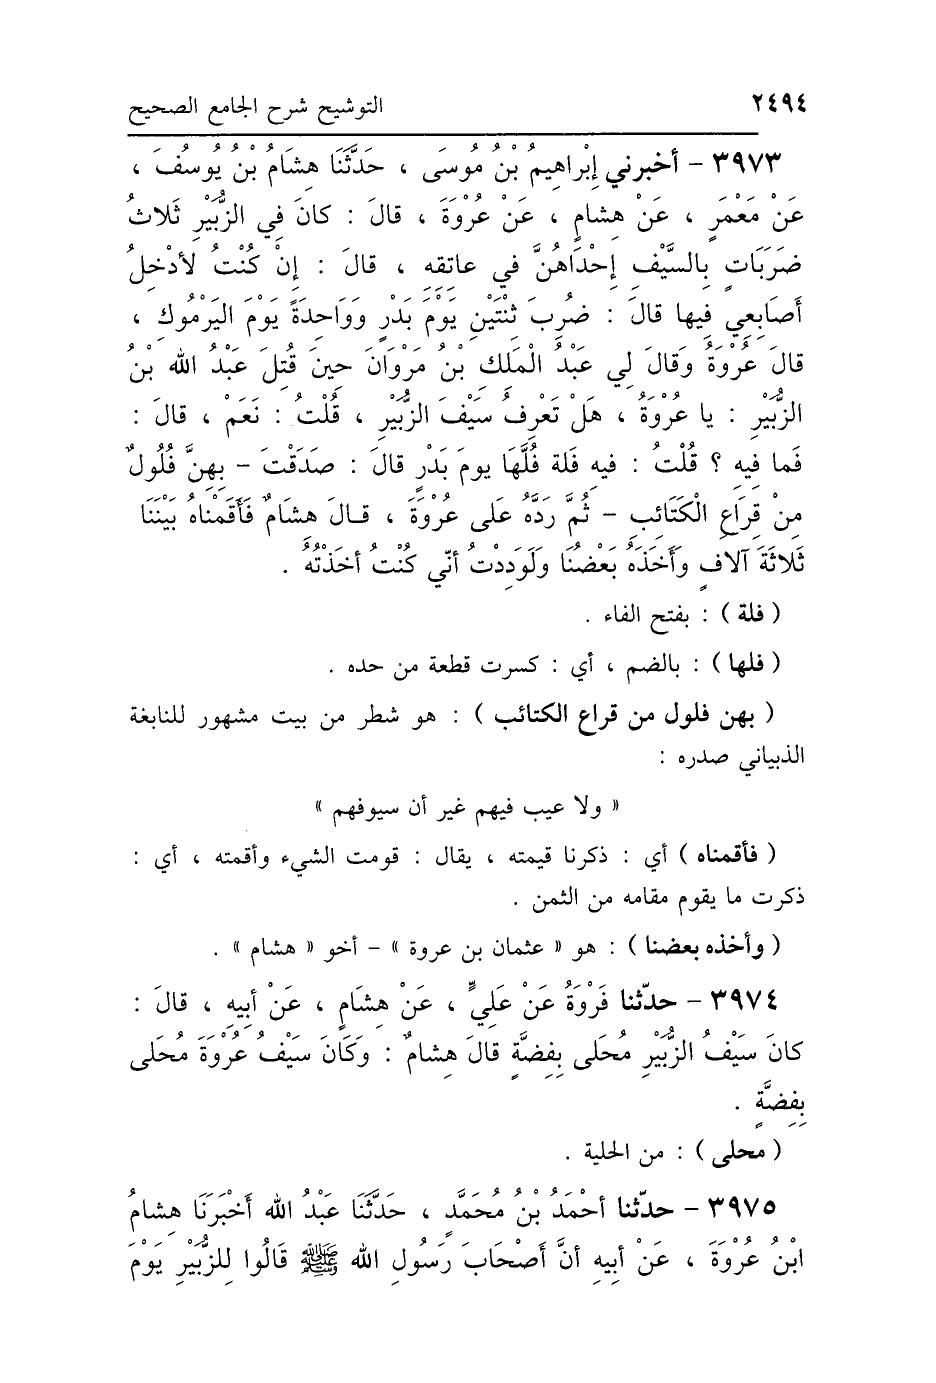 ٢٤٩٤ التوشيح شرح الجامع الصحيح
٣٩٧٣ – أخبرني إِبْراهِيمُ بْنُ مُوسَى ، حَدَّثَنَا هِشَامُ بْنُ يُوسُفَ ،
عَنْ مَعْمَرٍ ، عَنْ هِشامٍ ، عَنْ عُرْوَةَ ، قالَ : كانَ فِي الزُّبَيْرِ ثَلاثُ
ضَرَبَاتٍ بِالسَّيْفِ إِحْدَاهُنَّ فِي عاتِقِهِ ، قالَ : إِنْ كُنْتُ لأَدْخِلُ
أَصَابِعِي فِيها قالَ : ضُرِبَ ثِنْتَيْنِ يَوْمَ بَدْرٍ وَوَاحِدَةً يَوْمَ اليَرْمُوكِ ،
قالَ عُرْوَةُ وَقالَ لِي عَبْدُ الْمَلِكِ بْنُ مَرْوَانَ حِينَ قُتِلَ عَبْدُ الله بْنُ
الزُّبَيْرِ : يا عُرْوَةُ ، هَلْ تَعْرِفُ سَيْفَ الزُّبَيْرِ ، قُلْتُ : نَعَمْ ، قالَ :
فَما فِيهِ ؟ قُلْتُ : فِيهِ فَلة فُلَّهَا يومَ بَدْرٍ قالَ : صَدَقْتَ – بِهِنَّ فُلُولٌ
مِنْ قِرَاعِ الْكَتَائِبِ – ثُمَّ رَدَّهُ عَلى عُرْوَةَ ، قـالَ هِشَامٌ فَأَقَمْناهُ بَيْنَنَا
ثَلاثَةَ آلافٍ وأَخَذَهُ بَعْضُنَا ولَوَدِدْتُ أنّي كُنْتُ أخَذْتُهُ .
( فلة ) : بفتح الفاء .
( فلها ) : بالضم ، أي : كسرت قطعة من حده .
( بهن فلول من قراع الكتائب ) : هو شطر من بيت مشهور للنابغة
الذبياني صدره :
« ولا عيب فيهم غير أن سيوفهم »
( فأقمناه ) أي : ذكرنا قيمته ، يقال : قومت الشيء وأقمته ، أي :
ذكرت ما يقوم مقامه من الثمن .
( وأخذه بعضنا ) : هو « عثمان بن عروة » – أخو « هشام » .
٣٩٧٤ – حدّثنا فَرْوَةُ عَنْ عَلِيٍّ ، عَنْ هِشَامٍ ، عَنْ أَبِيهِ ، قالَ :
كانَ سَيْفُ الزُّبَيْرِ مُحَلى بِفِضَّةٍ قالَ هِشامٌ : وَكَانَ سَيْفُ عُرْوَةَ مُحَلى
بِفِضَّةٍ .
( محلى ) : من الحلية .
٣٩٧٥ – حدّثنا أحْمَدُ بْنُ مُحَمَّدٍ ، حَدَّثَنَا عَبْدُ الله أَخْبَرَنَا هِشامُ
ابْنُ عُرْوَةَ ، عَنْ أَبِيهِ أَنَّ أَصْحَابَ رَسُولِ الله ﷺ قَالُوا لِلزُّبَيْرِ يَوْمَ